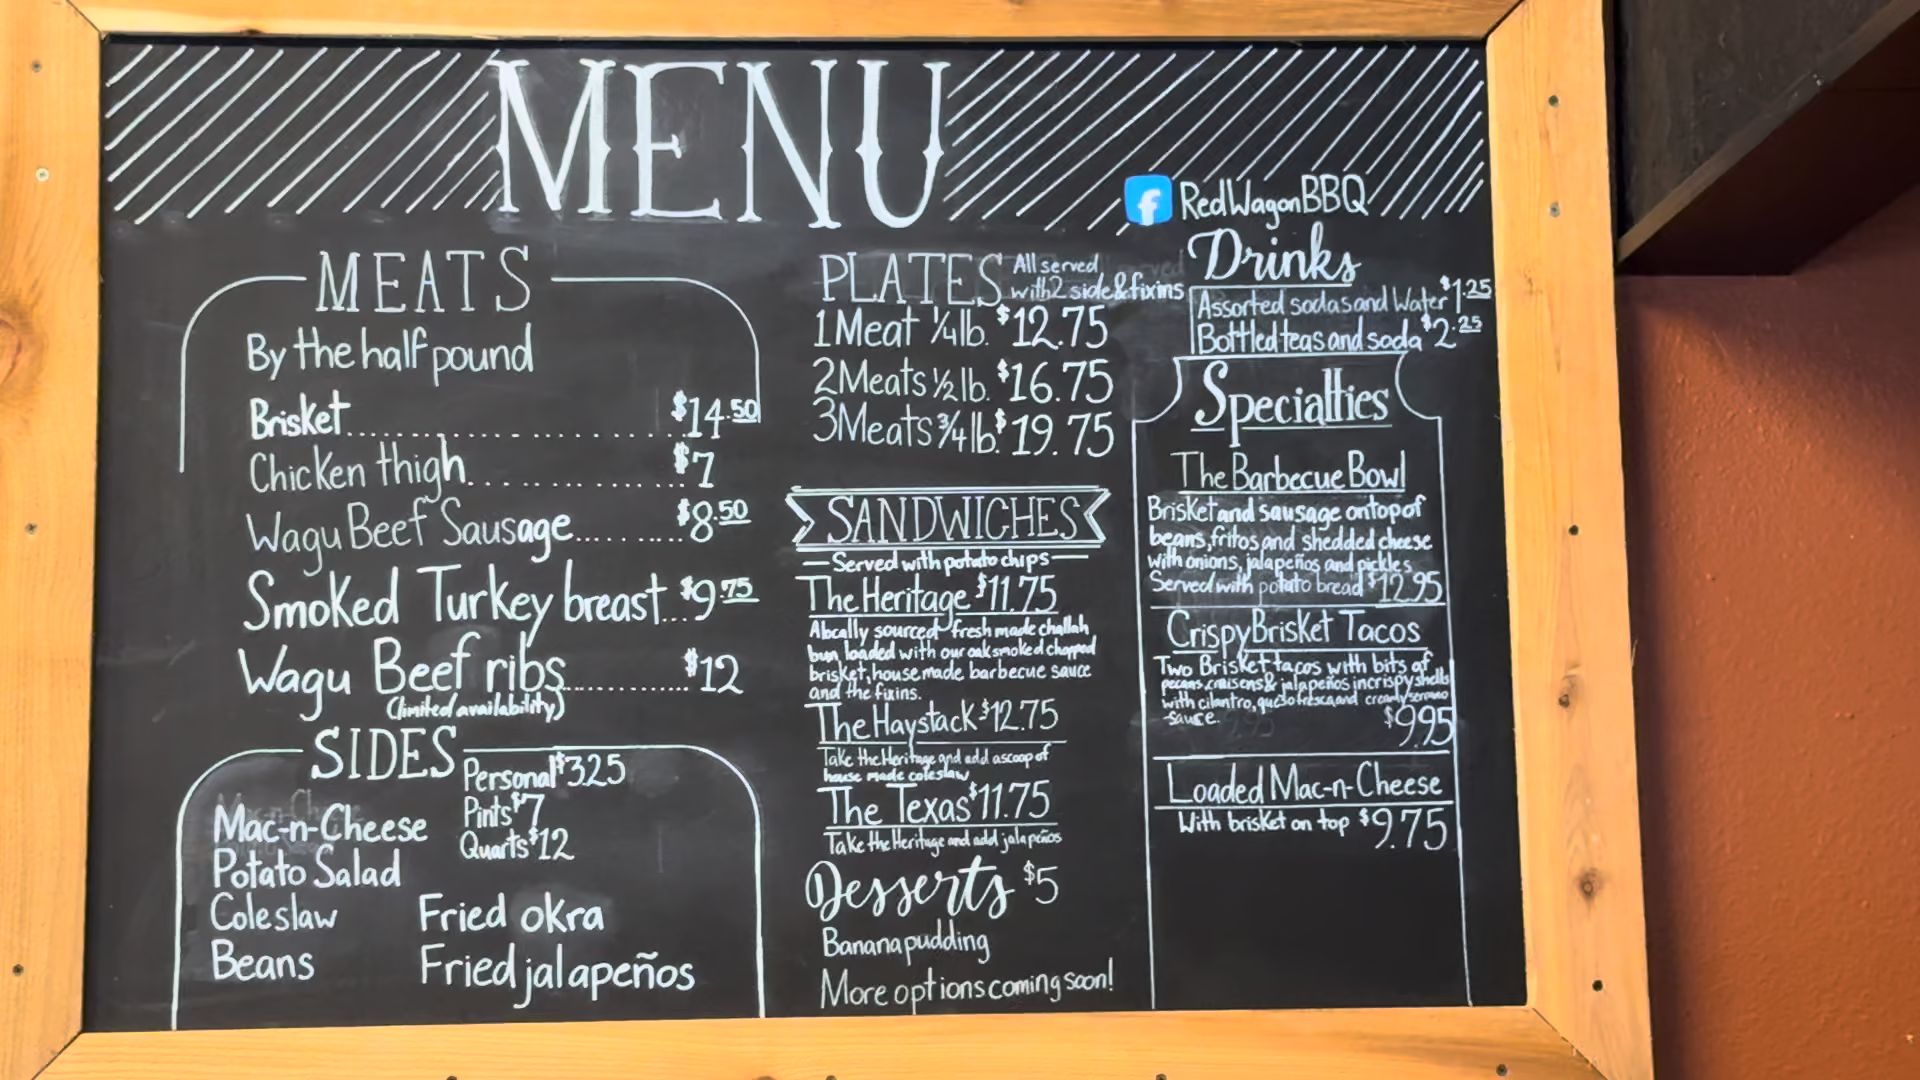 MENU
f RedWagonBBQ
MEATS
By the half pound
Brisket $14.50
Chicken thigh $7
Wagu Beef Sausage $8.50
Smoked Turkey breast $9.75
Wagu Beef ribs $12
(limited availability)
SIDES
Personal $3.25
Pints $7
Quarts $12
Mac-n-Cheese
Potato Salad
Coleslaw
Beans
Fried okra
Fried jalapeños
PLATES All served
with 2 side & fixins
1 Meat 1/4 lb. $12.75
2 Meats 1/2 lb. $16.75
3 Meats 3/4 lb. $19.75
SANDWICHES
Served with potato chips
The Heritage $11.75
A locally sourced fresh made challah
bun loaded with our oak smoked chopped
brisket, house made barbecue sauce
and the fixins.
The Haystack $12.75
Take the Heritage and add a scoop of
house made coleslaw
The Texas $11.75
Take the Heritage and add jalapeños
Desserts $5
Banana pudding
More options coming soon!
Drinks
Assorted sodas and Water $1.25
Bottled teas and soda $2.25
Specialties
The Barbecue Bowl
Brisket and sausage on top of
beans, fritos and shedded cheese
with onions, jalapeños and pickles
Served with potato bread $12.95
Crispy Brisket Tacos
Two Brisket tacos with bits of
pecans, craisens & jalapeños in crispy shells
with cilantro, queso fresca, and creamy serrano
sauce. $9.95
Loaded Mac-n-Cheese
With brisket on top $9.75